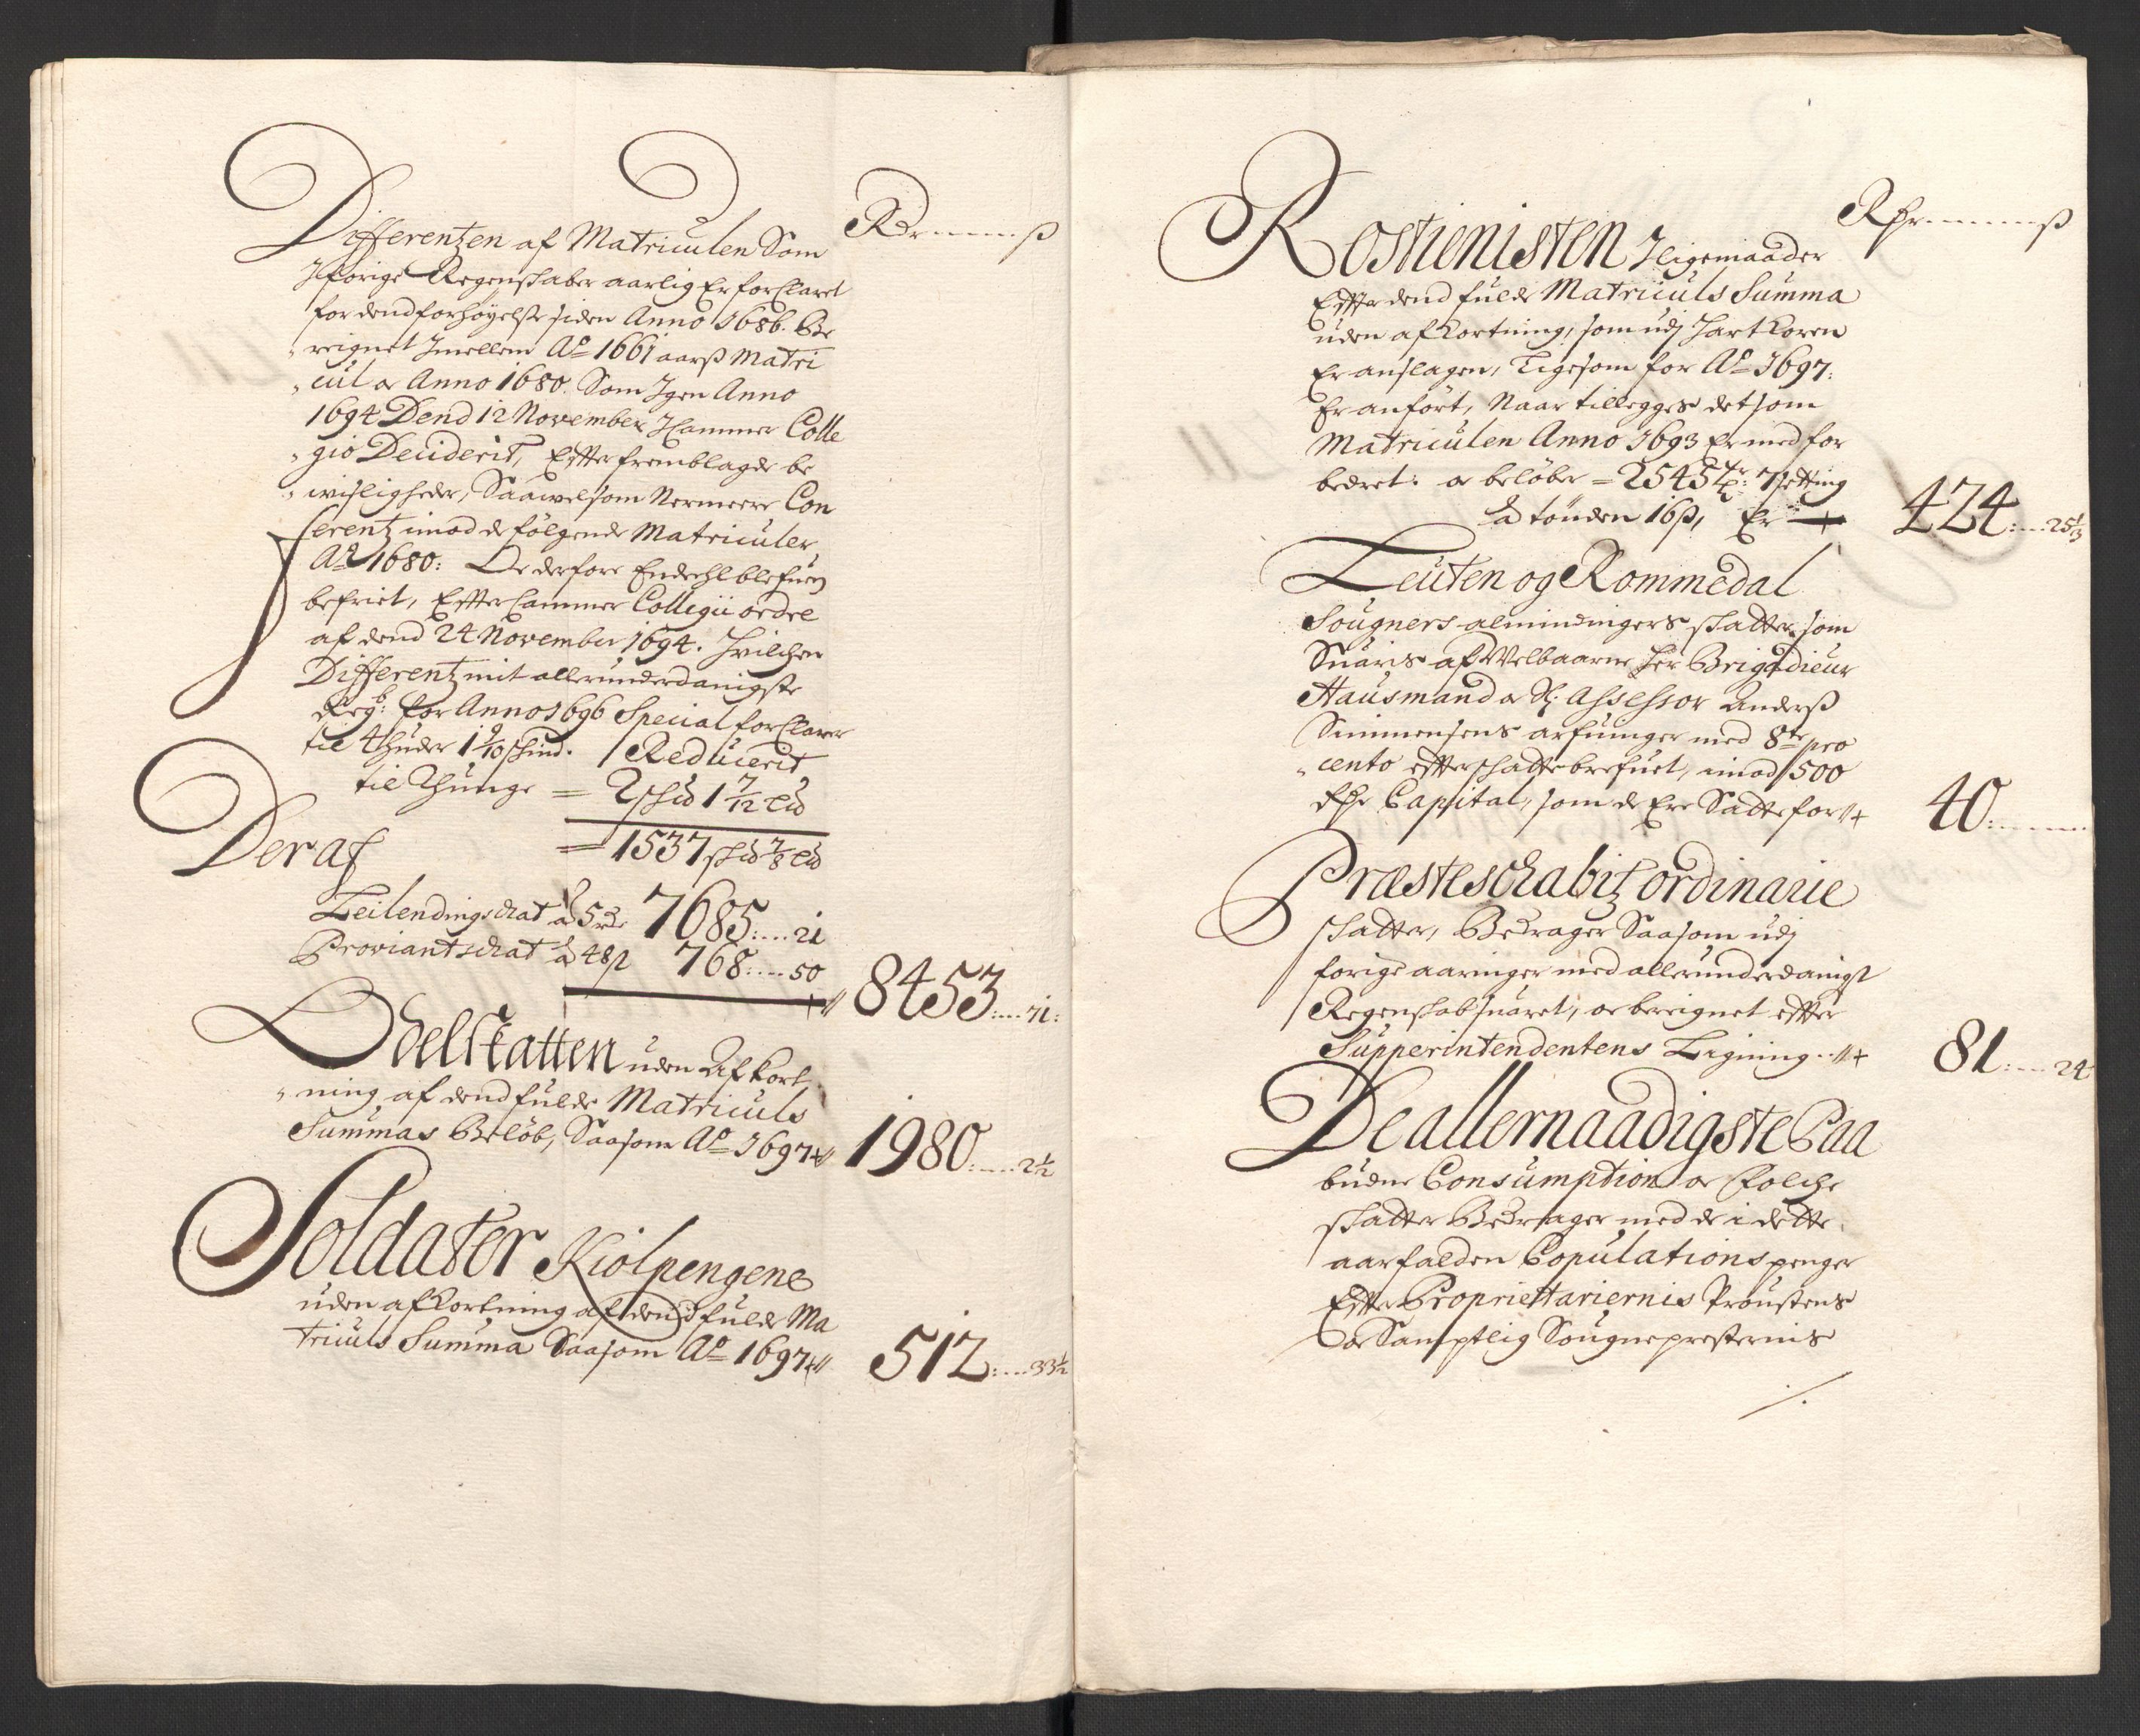 Rdr ß
Differentzen af Matriculen Som
Iforige Regenskaber aarlig Er forklaret
for dend forhøyelse siden Anno 1686. Be
reignet Imellem Ao 1661 aarß Matri
cul og Anno 1680. Som Igen Anno
1694 Dend 12 November I Cammer Colle
gio Deciderit, Efter fremblagde be
wisligheder, Saawelsom Nermeere Con
ferentz imod de følgende Matriculer
Ao 1680: Og derfore Endeehl blefuen
befriet, Efter Cammer Collegii ordre
af dend 24 November 1694. Hvilchen
Differentz mit allerunderdanigste
Regb: for Anno 1696 Special forklarer
til 4 huder 1 9/10 skind. Reducerit
til Thunge = 2 skid 1 7/12 Lid
Deraf = 1537 skid 7/8 Lid
Leilendingschat a 5 rd 7685: 21
Proviantschat a 48 ß 768: 50
8453: 71:
Odelskatten uden Afkort
ning af dend fulde Matriculs
Summas Beløb, Saasom Ao 1697 1980: 2½
Soldater Kiolpengene
uden afkortning af dend fulde Ma
triculs Summa Saasom Ao 1697 512: 33½
Rdr ß
Rostienisten I ligemaader
Effter dend fulde Matriculs Summa
uden afkortning, som udj Hartkoren
Er anslagen, Ligesom for Ao 1697:
Er anført, Naar tillegges det som
Matriculen Anno 1693 Er med for
bedret: og beløber = 2545 tr: 7 setting
a tønden 16 ß, Er 424: 25⅓
Leuten og Rommedal
Sougners almindingers skatter som
Suaris af Welbaarne Her Brigadieur
Hausmand og Sl: Assessor Anderß
Simmensens arfuinger med 8te pro
cento efter skattebrefuet, imod 1500
Rdr Capital, som de Ere Satte for 40:
Præsteschabitz ordinarie
skatter, Bedrager Saasom udj
forige aaringer med allerunderdanigst
Regenskab suaret, og bereignet effter
Supperintendentens Ligning 81: 24
De allernaadigste Paa
budne Consumption og Folche
skatter Bedrager med de i dette
aar falden Copulations penger
Efter Proprietariernis Proustens
og Samptlig Sougnepresternis